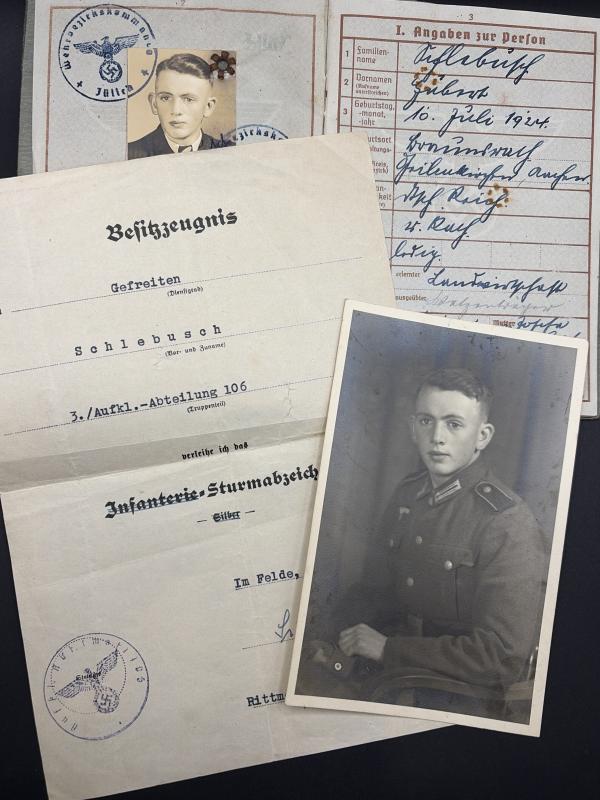 Wehrbezirkskommando
Jülich
ezirkskom
3
I. Angaben zur Person
1 Familien-
name
Schlebusch
2 Vornamen
(Rufname
unterstreichen)
Hubert
3 Geburtstag,
-monat,
-jahr
10. Juli 1924.
burtsort
Braunsrath
Geilenkirchen, Aachen
Dtsch Reich
r. kath
ledig.
erlernter
Landwirtschaft
ausgeübter
Besitzzeugnis
Gefreiten
(Dienstgrad)
Schlebusch
(Vor- und Zuname)
3./Aufkl.-Abteilung 106
(Truppenteil)
verleihe ich das
Infanterie-Sturmabzeich
— Silber —
Im Felde,
Rittm